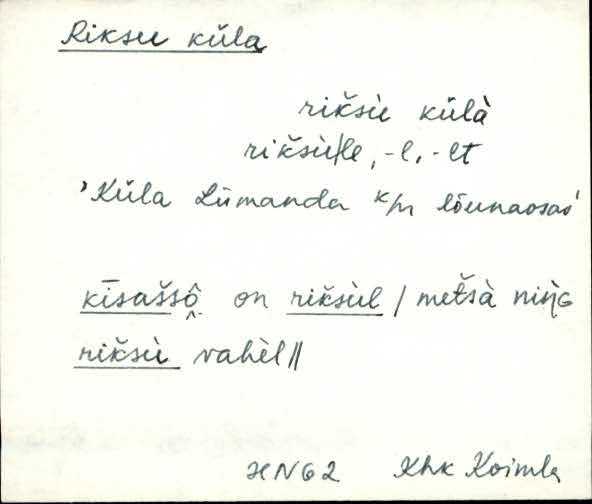 Riksu küla
rikšù külà
rikšù|le, -l, -lt
'Küla Lümanda k/n lõunaosas'
kīsaššô̭ on rikšùl / metšà niŋG
rikšù vahèl //
HN62 Khk Koimla